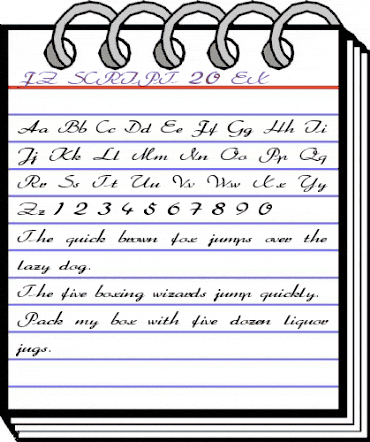 FZ SCRIPT 20 EX
Aa Bb Cc Dd Ee Ff Gg Hh Ii
Jj Kk Ll Mm Nn Oo Pp Qq
Rr Ss Tt Uu Vv Ww Xx Yy
Zz 1 2 3 4 5 6 7 8 9 0
The quick brown fox jumps over the
lazy dog.
The five boxing wizards jump quickly.
Pack my box with five dozen liquor
jugs.